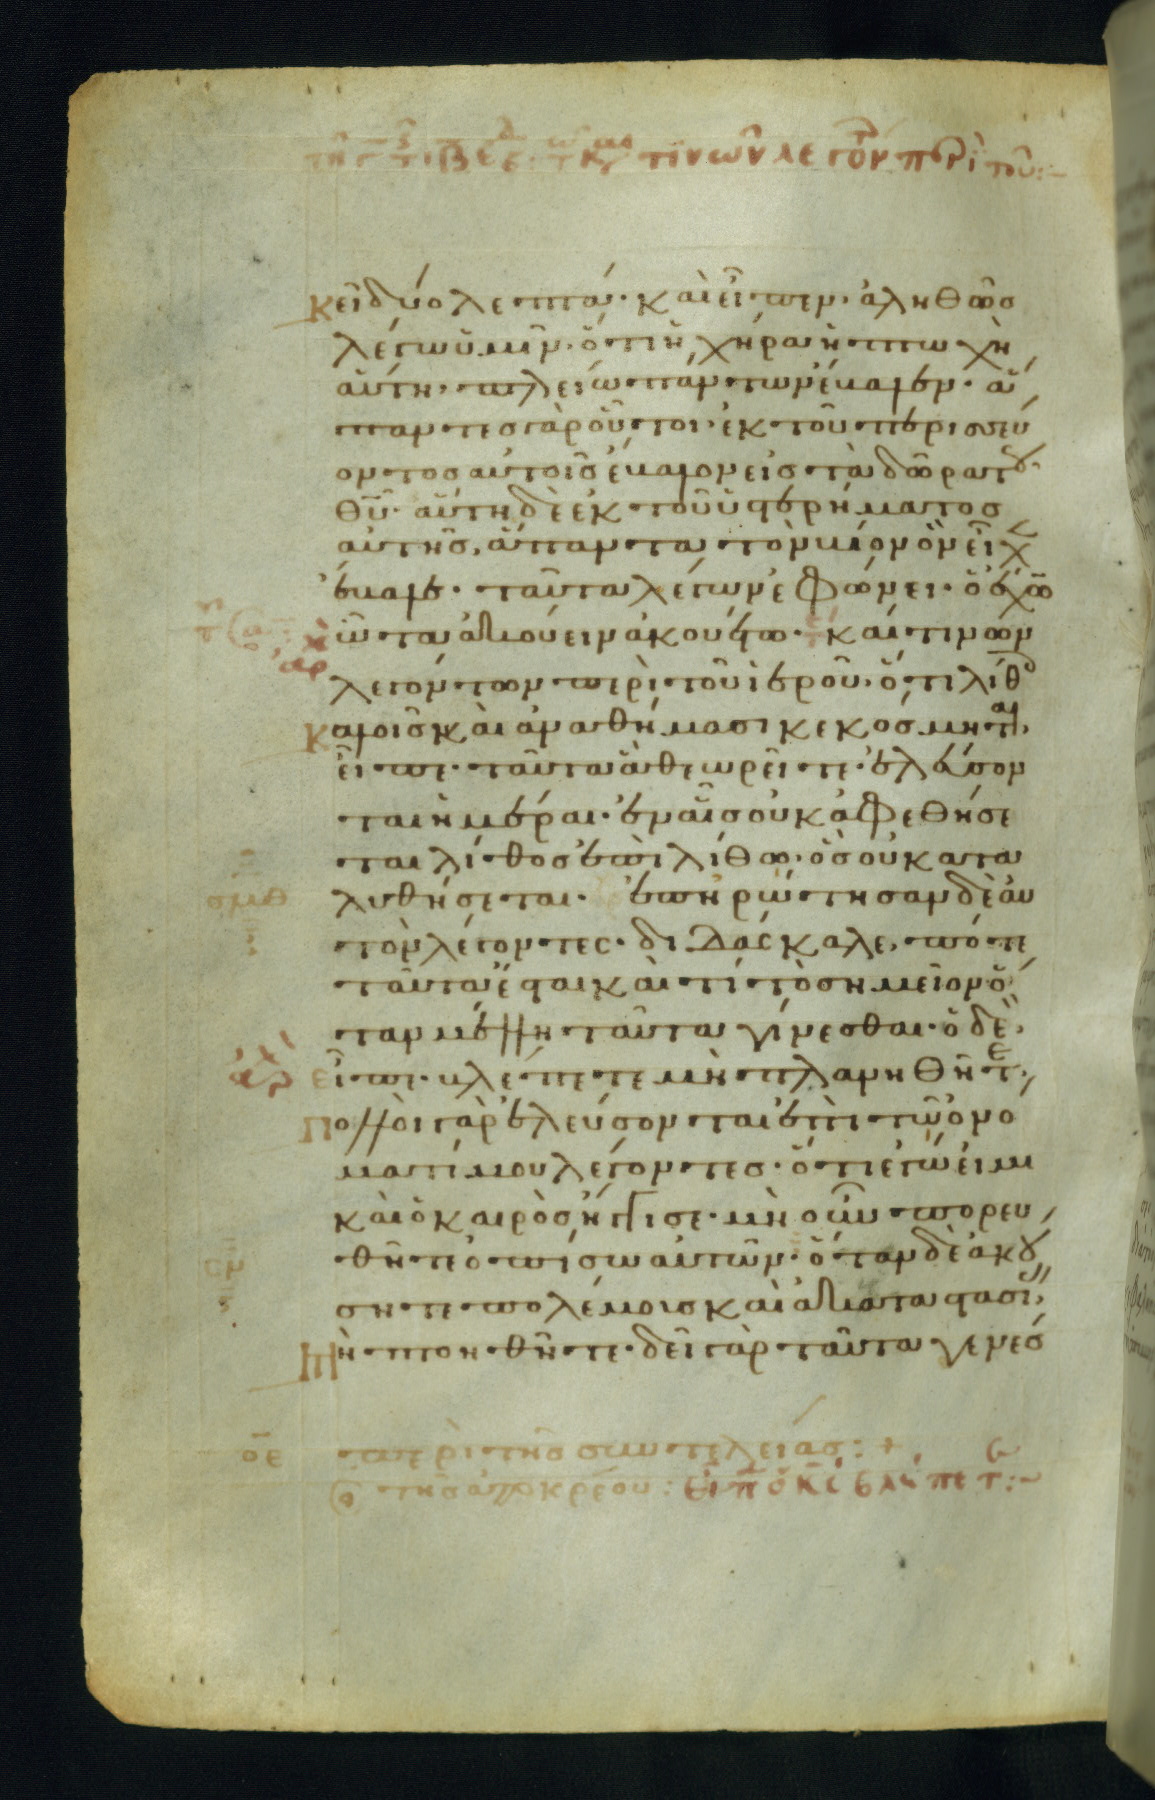 τινῶν λεγόντ περὶ τοῦ:-
κεῖ δύο λεπτά· καὶ εἶπεν· ἀληθῶσ
λέγω ὑμῖν· ὅτι ἡ χήρα ἡ πτωχὴ
αὕτη, πλείω πάντων ἔβαλεν· ἅ
παντεσ γὰρ οὗτοι, ἐκ τοῦ περισσεύ
οντοσ αὐτοῖσ ἔβαλον εἰσ τὰ δῶρα τȣ
θῦ· αὕτη δὲ ἐκ τοῦ ὑστερήματοσ
αὐτῆσ, ἅπαντα τὸν βίον ὃν εἶχ
ἔβαλε· ταῦτα λέγων ἐφώνει· ὁ ἔχω
ὦτα ἀκούειν ἀκουέτω· καί τινων
λεγόντων περὶ τοῦ ἱεροῦ, ὅτι λίθ
καλοῖσ καὶ ἀναθήμασι κεκόσμηται,
εἶπε· ταῦτα ἃ θεωρεῖτε· ἐλεύσον
ται ἡμέραι· ἐν αἷσ οὐκ ἀφεθήσε
ται λίθοσ ἐπὶ λίθω· ὃσ οὐ κατα
λυθήσεται· ἐπηρώτησαν δὲ αὐ
τὸν λέγοντες· διδάσκαλε, πότε
ταῦτα ἔσται καὶ τί τὸ σημεῖον ὅ
ταν μέλλη ταῦτα γίνεσθαι· ὁ δὲ,
εἶπε· βλέπετε μὴ πλανηθῆτε,
πολλοὶ γὰρ ἐλεύσονται ἐπὶ τῶ ὀνό
ματί μου λέγοντεσ· ὅτι ἐγώ εἰμι
καὶ ὁ καιρὸσ ἤγγισε· μὴ οὖν πορευ
θῆτε ὀπίσω αὐτῶν· ὅταν δὲ ἀκȣ
σητε πολέμουσ καὶ ἀκαταστασί,
μὴ πτοηθῆτε· δεῖ γὰρ ταῦτα γενέσ
οε περὶ τῆσ συντελείασ: +
τῆσ ἀπόκρεου: εἶπ ὁ κς βλέπετ:-